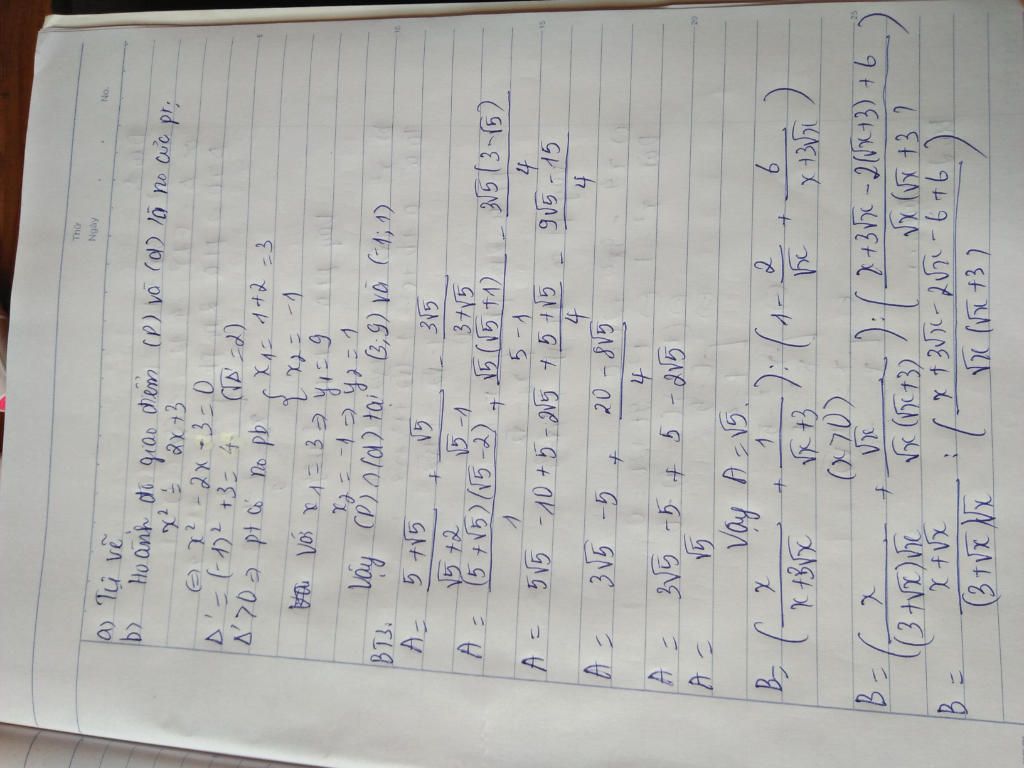 Thứ
Ngày
No.
a) Tự vẽ
b) Hoành độ giao điểm (P) và (d) là no của pt:
x² = 2x+3
⇔ x² - 2x - 3 = 0
Δ' = (-1)² + 3 = 4 (√Δ' = 2)
Δ' > 0 ⇒ pt có no pb { x1 = 1+2 = 3
{ x2 = -1
Với x1 = 3 ⇒ y1 = 9
x2 = -1 ⇒ y2 = 1
Vậy (P) ∩ (d) tại (3;9) và (-1;1)
BT3.
A = (5+√5)/(√5+2) + √5/(√5-1) - 3√5/(3+√5)
A = (5+√5)(√5-2)/1 + √5(√5+1)/(5-1) - 3√5(3-√5)/4
A = 5√5 - 10 + 5 - 2√5 + (5+√5)/4 - (9√5-15)/4
A = 3√5 - 5 + (20-8√5)/4
A = 3√5 - 5 + 5 - 2√5
A = √5
Vậy A = √5.
B = (x/(x+3√x) + 1/(√x+3)) : (1 - 2/√x + 6/(x+3√x))
(x>0)
B = (x/((3+√x)√x) + √x/(√x(√x+3))) : ((x+3√x-2(√x+3)+6)/(√x(√x+3)))
B = (x+√x)/((3+√x)√x) : ((x+3√x-2√x-6+6)/(√x(√x+3)))